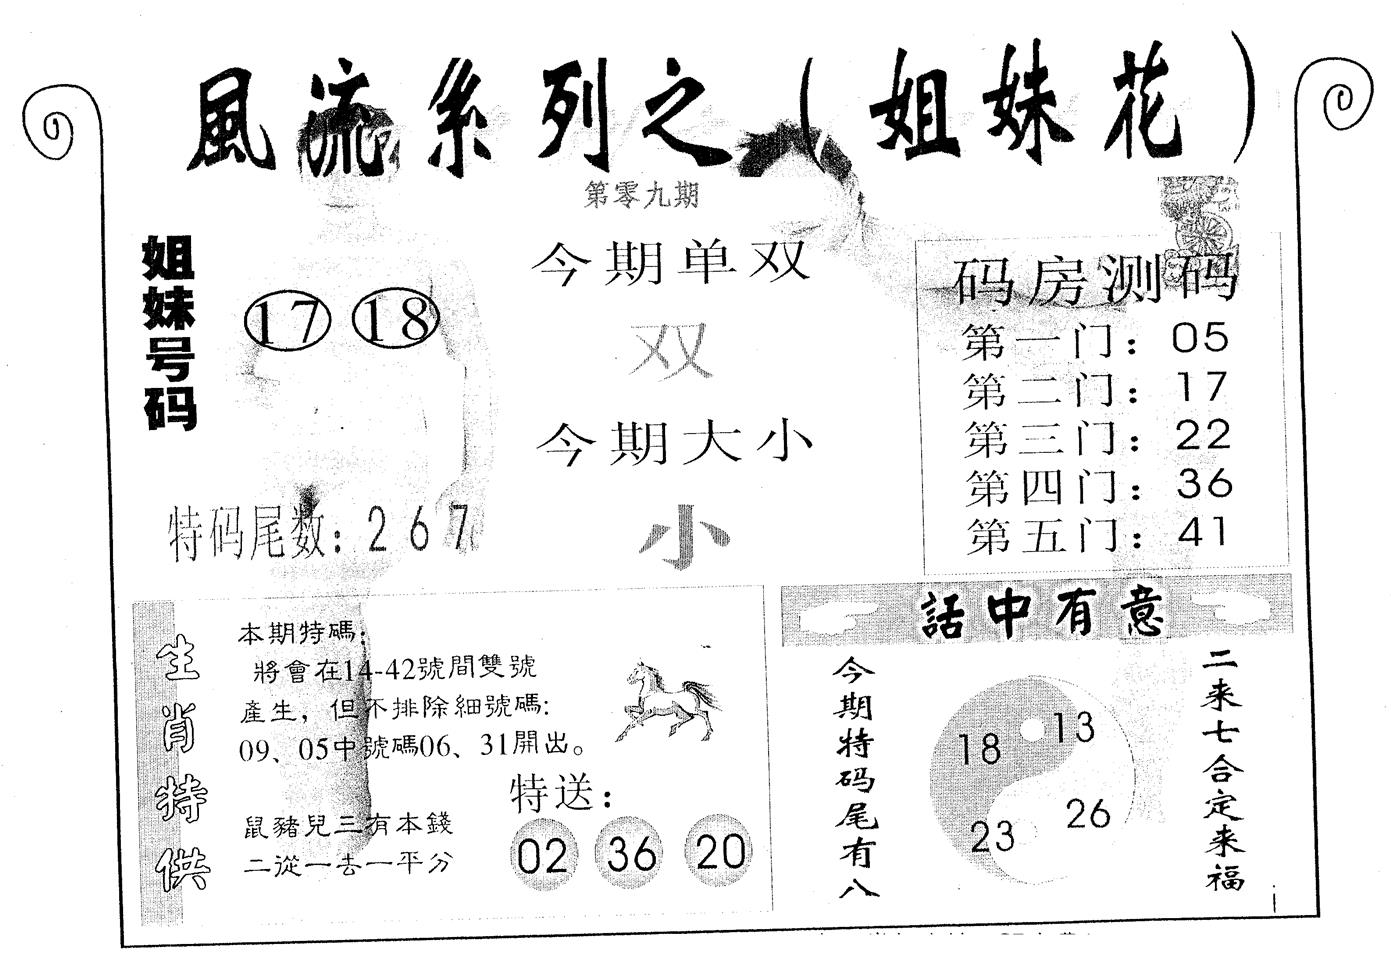 風流系列之（姐妹花）
第零九期
姐妹号码
17 18
特码尾数：2 6 7
今期单双
双
今期大小
小
码房测码
第一门：05
第二门：17
第三门：22
第四门：36
第五门：41
生肖特供
本期特碼：
將會在14-42號間雙號
產生，但不排除細號碼：
09、05中號碼06、31開出。
鼠豬兒三有本錢
二從一去一平分
特送：
02 36 20
話中有意
今期特码尾有八
18 13
23 26
二来七合定来福